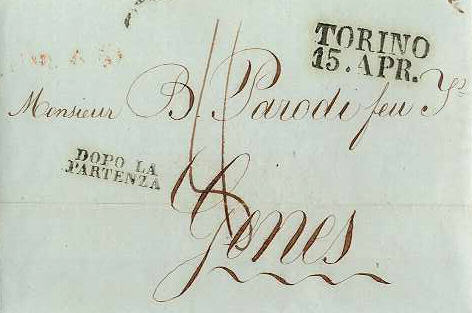 TORINO
15. APR.
Monsieur B. Parodi feu
DOPO LA
PARTENZA
Gênes